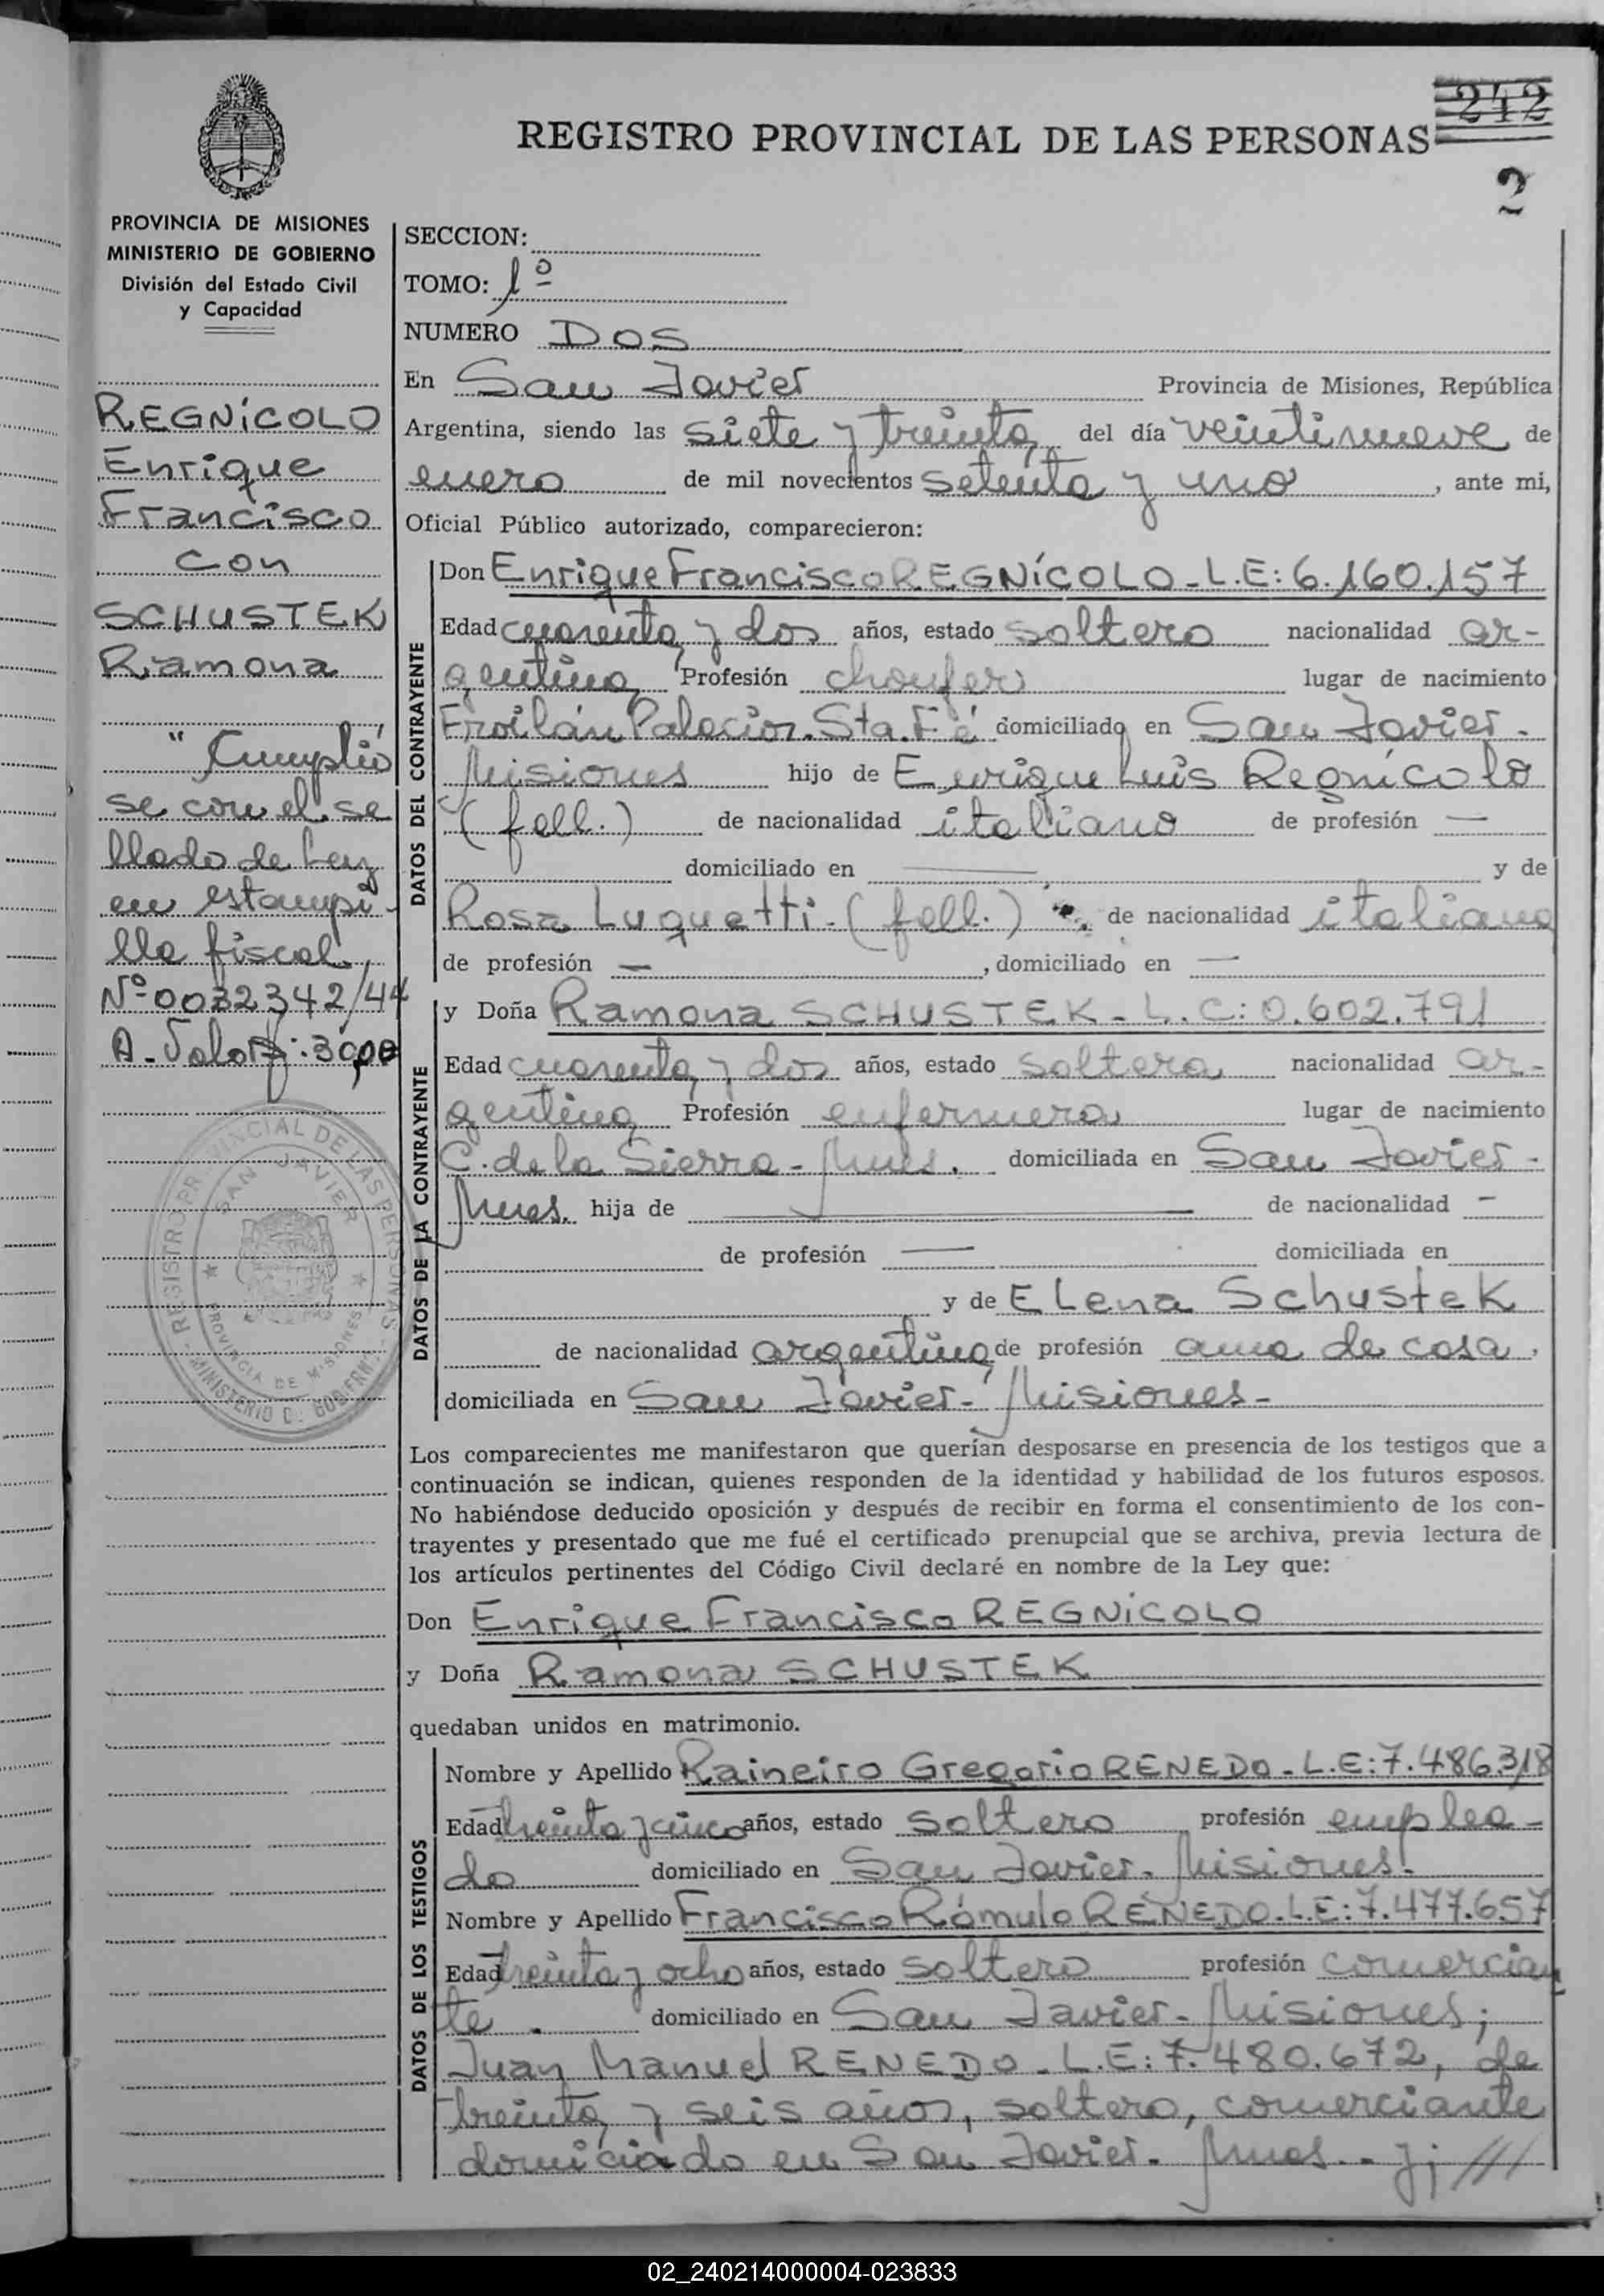 242
REGISTRO PROVINCIAL DE LAS PERSONAS
2
PROVINCIA DE MISIONES
MINISTERIO DE GOBIERNO
División del Estado Civil
y Capacidad
REGNÍCOLO
Enrique
Francisco
con
SCHUSTEK
Ramona
"Cumplió
se con el se
llado de Ley
en estampi-
lla fiscal
Nº 0032342/44
A-Valor $: 30,00
REGISTRO PROVINCIAL DE LAS PERSONAS - MINISTERIO DE GOBIERNO
SAN JAVIER
PROVINCIA DE MISIONES
SECCION:
TOMO: 1º
NUMERO DOS
En San Javier Provincia de Misiones, República
Argentina, siendo las siete y treinta del día veintinueve de
enero de mil novecientos setenta y uno, ante mi,
Oficial Público autorizado, comparecieron:
DATOS DEL CONTRAYENTE
Don Enrique Francisco REGNÍCOLO - L.E: 6.160.157
Edad cuarenta y dos años, estado soltero nacionalidad ar-
gentina Profesión choufer lugar de nacimiento
Froilán Palacios. Sta. Fé domiciliado en San Javier.
Misiones hijo de Enrique Luis Regnícolo
(fall.) de nacionalidad italiano de profesión —
domiciliado en — y de
Rosa Luquetti. (fall.) de nacionalidad italiana
de profesión — , domiciliado en —
DATOS DE LA CONTRAYENTE
y Doña Ramona SCHUSTEK - L.C: 0.602.791
Edad cuarenta y dos años, estado soltera nacionalidad ar-
gentina Profesión enfermera lugar de nacimiento
C. de la Sierra - Mnes. domiciliada en San Javier -
Mnes. hija de — de nacionalidad —
de profesión — domiciliada en
y de Elena Schustek
de nacionalidad argentina de profesión ama de casa,
domiciliada en San Javier - Misiones -
Los comparecientes me manifestaron que querían desposarse en presencia de los testigos que a
continuación se indican, quienes responden de la identidad y habilidad de los futuros esposos.
No habiéndose deducido oposición y después de recibir en forma el consentimiento de los con-
trayentes y presentado que me fué el certificado prenupcial que se archiva, previa lectura de
los artículos pertinentes del Código Civil declaré en nombre de la Ley que:
Don Enrique Francisco REGNÍCOLO
y Doña Ramona SCHUSTEK
quedaban unidos en matrimonio.
DATOS DE LOS TESTIGOS
Nombre y Apellido Raineiro Gregorio RENEDO - L.E: 7.486.318
Edad treinta y cinco años, estado soltero profesión emplea-
do domiciliado en San Javier. Misiones.
Nombre y Apellido Francisco Rómulo RENEDO. L.E: 7.477.657
Edad treinta y ocho años, estado soltero profesión comercian
te. domiciliado en San Javier - Misiones;
Juan Manuel RENEDO - L.E: 7.480.672, de
treinta y seis años, soltero, comerciante
domiciado en San Javier. Mnes.. y; ///
02_240214000004-023833